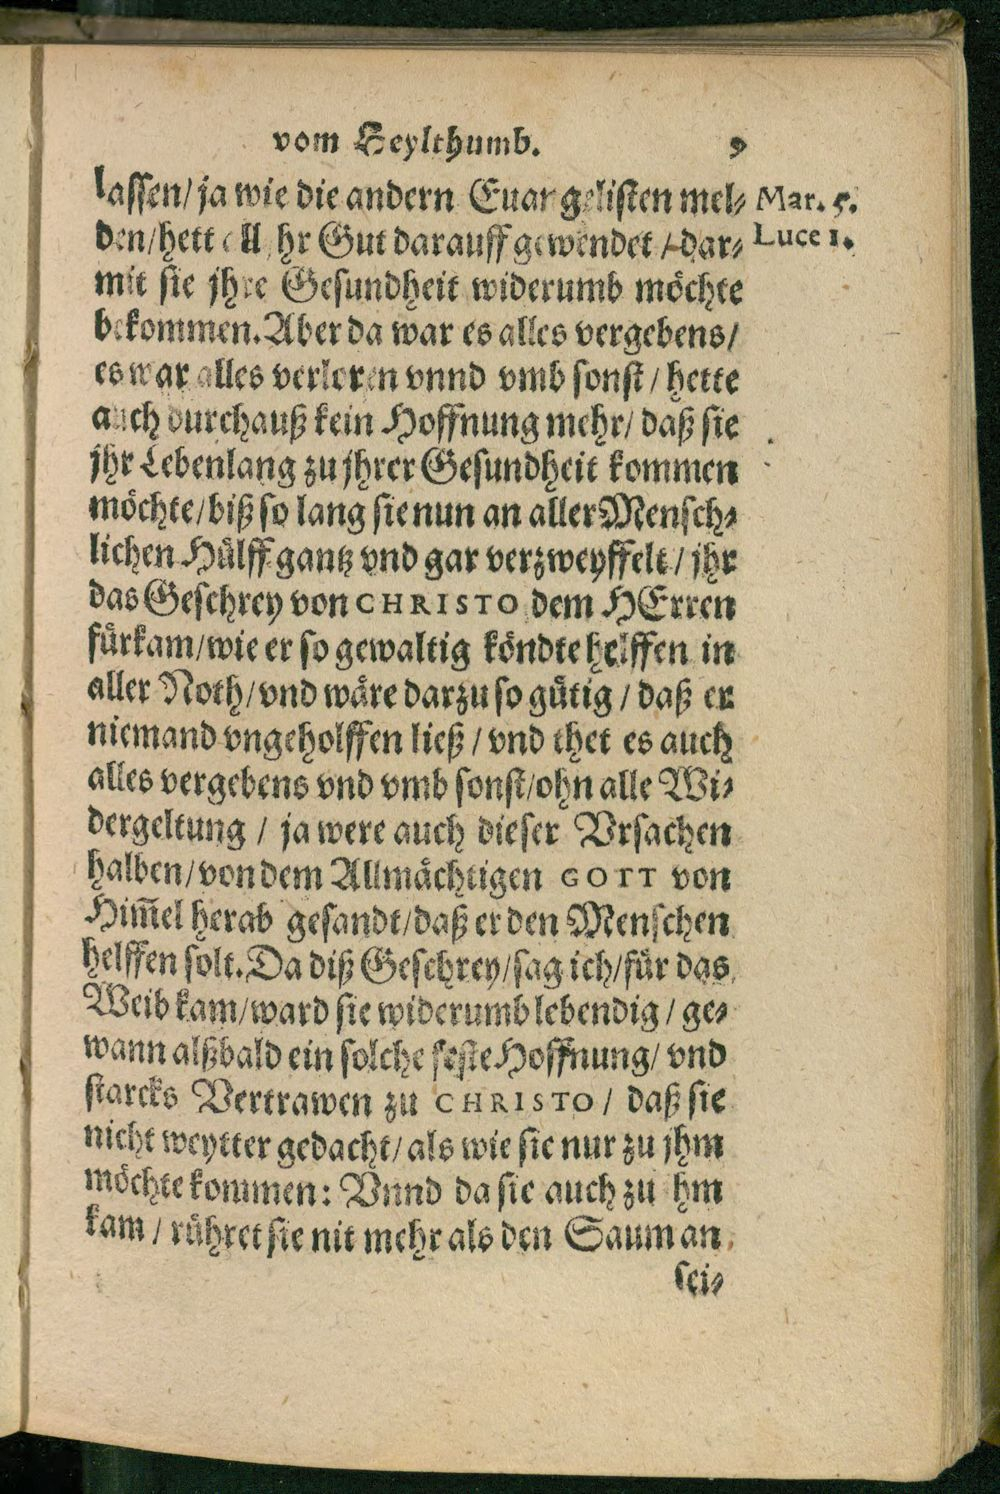 vom Heylthumb. 9
lassen/ ja wie die andern Euangelisten mel- Mar. 5.
den/ hett all jhr Gut darauff gewendet / dar- Luce 1.
mit sie jhre Gesundheit widerumb möchte
bekommen. Aber da war es alles vergebens/
es war alles verloren vnnd vmb sonst / hette
auch durchauß kein Hoffnung mehr/ daß sie
jhr Lebenlang zu jhrer Gesundheit kommen
möchte/ biß so lang sie nun an aller Mensch-
lichen Hülff gantz vnd gar verzweyffelt / jhr
das Geschrey von CHRISTO dem HErren
fürkam/ wie er so gewaltig köndte helffen in
aller Noth/ vnd wäre darzu so gütig / daß er
niemand vngeholffen ließ / vnd thet es auch
alles vergebens vnd vmb sonst/ ohn alle Wi-
dergeltung / ja were auch dieser Vrsachen
halben/ von dem Allmächtigen GOTT von
Him̄el herab gesandt/ daß er den Menschen
helffen solt. Da diß Geschrey/ sag ich/ für das
Weib kam/ ward sie widerumb lebendig / ge-
wann alßbald ein solche feste Hoffnung/ vnd
starcks Vertrawen zu CHRISTO / daß sie
nicht weytter gedacht/ als wie sie nur zu jhm
möchte kommen: Vnnd da sie auch zu jhm
kam / rühret sie nit mehr als den Saum an
sei-